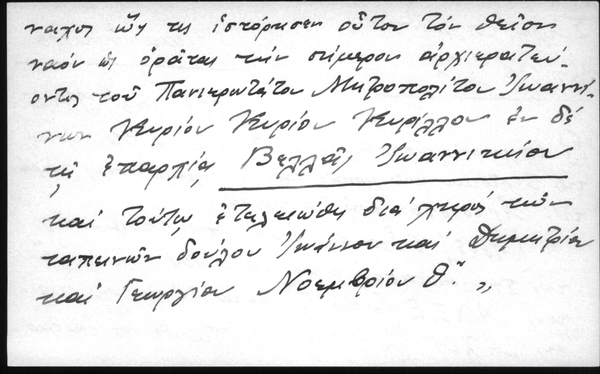 ναχος ὥς τις ἱστόρησεν οὗτον τὸν θεῖον
ναὸν ὡς ὁρᾶται τὴν σήμερον ἀρχιερατεύ-
οντος τοῦ Πανιερωτάτου Μητροπολίτου Ἰωαννί-
νων Κυρίου Κυρίου Κυρίλλου ἐν δέ
τῇ ἐπαρχίᾳ Βελλᾶς Ἰωαννικίου
καὶ τοῦτο ἐτελειώθη διὰ χειρός τῶν
ταπεινῶν δούλου Ἰωάννου καὶ Δημητρίου
καὶ Γεωργίου Νοεμβρίου θ. "